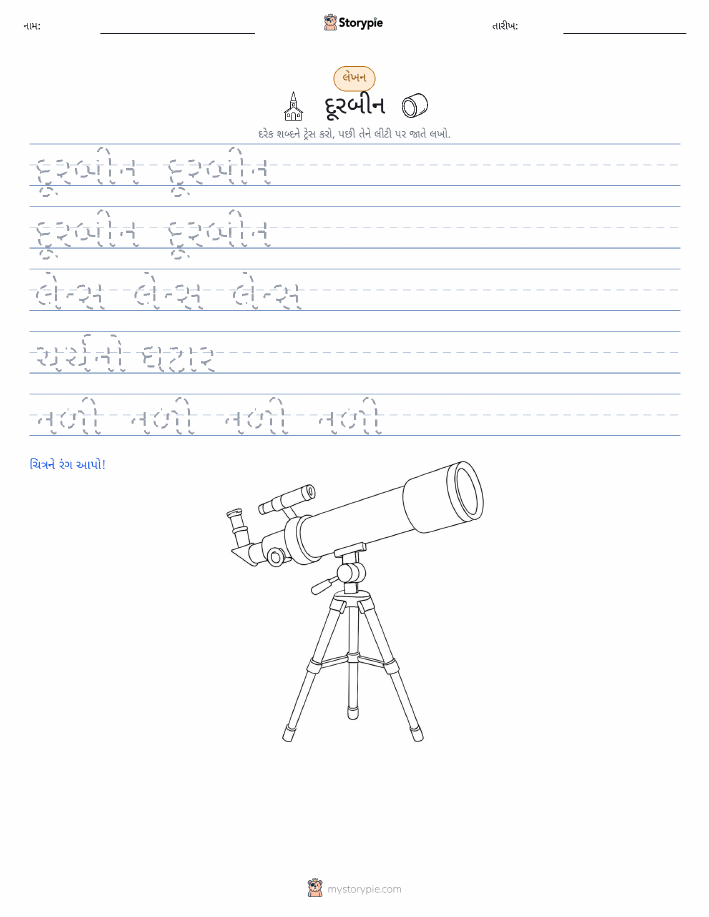 નામ:
Storypie
તારીખ:
લેખન
દૂરબીન
દરેક શબ્દને ટ્રેસ કરો, પછી તેને લીટી પર જાતે લખો.
દૂરબીન દૂરબીન
દૂરબીન દૂરબીન
લેન્સ લેન્સ લેન્સ
ચર્ચનો ઘંટાર
નળી નળી નળી નળી
ચિત્રને રંગ આપો!
mystorypie.com